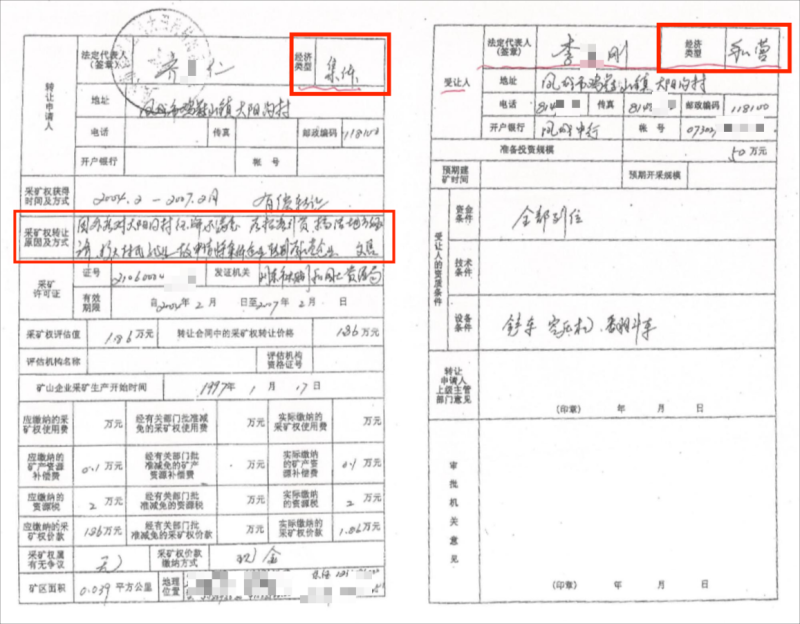 转让申请人
法定代表人
(签章)
仁
经济
类型
集体
地址
凤城市鸡冠山镇大阳沟村
电话
传真
邮政编码
118100
开户银行
帐号
采矿权获得
时间及方式
2004.2-2007.2月
有偿转让
采矿权转让
原因及方式
采矿
许可证
证号
21060004
发证机关
有效
期限
自2004年2月 日至2007年2月 日
采矿权评估值
1.86万元
转让合同中的采矿权转让价格
1.86万元
评估机构名称
评估机构
资格证号
矿山企业采矿生产开始时间
1997年1月17日
应缴纳的采
矿权使用费
万元
经有关部门批准减
免的采矿权使用费
万元
实际缴纳的
采矿权使用费
万元
应缴纳的
矿产资源
补偿费
0.1万元
经有关部门批
准减免的矿产
资源补偿费
万元
实际缴纳
的矿产资
源补偿费
0.1万元
应缴纳的
资源税
2万元
经有关部门批
准减免的资源税
万元
实际缴纳的
资源税
2万元
应缴纳的采
矿权价款
1.86万元
经有关部门批
准减免的采矿权价款
万元
实际缴纳的
采矿权价款
1.86万元
采矿权属
有无争议
无
采矿权价款
缴纳方式
现金
矿区面积
0.039平方公里
地理
位置
受让人
法定代表人
(签章)
李 刚
经济
类型
私营
地址
凤城市鸡冠山镇大阳沟村
电话
传真
邮政编码
118100
开户银行
凤城中行
账号
准备投资规模
50万元
预期建
矿时间
预期开采规模
受让人的资质条件
资金
条件
全部到位
技术
条件
设备
条件
铲车 空压机、翻斗车
转让
申请人
上级主管
部门意见
(印章) 年 月 日
审批机关意见
(印章) 年 月 日